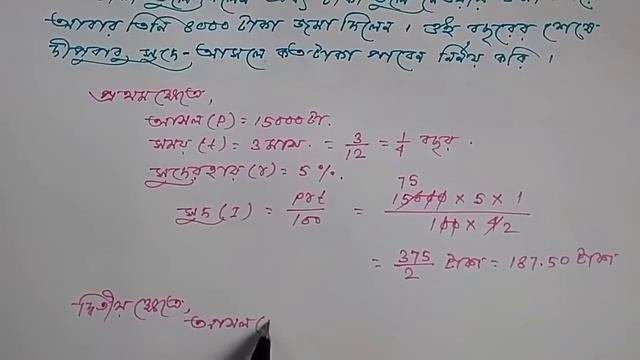 আবার তিনি ৪০০০ টাকা জমা দিলেন। ওই বছরের শেষে
দীপুবাবু সুদে-আসলে কত টাকা পাবেন নির্ণয় করি।
প্রথম ক্ষেত্রে,
আসল (P) = 15000 টা.
সময় (t) = 3 মাস. = 3/12 = 1/4 বছর.
সুদের হার (r) = 5%.
সুদ (I) = prt/100 = 75 15000 × 5 × 1 / 100 × 4 2
= 375/2 টাকা = 187.50 টাকা
দ্বিতীয় ক্ষেত্রে,
আসল (